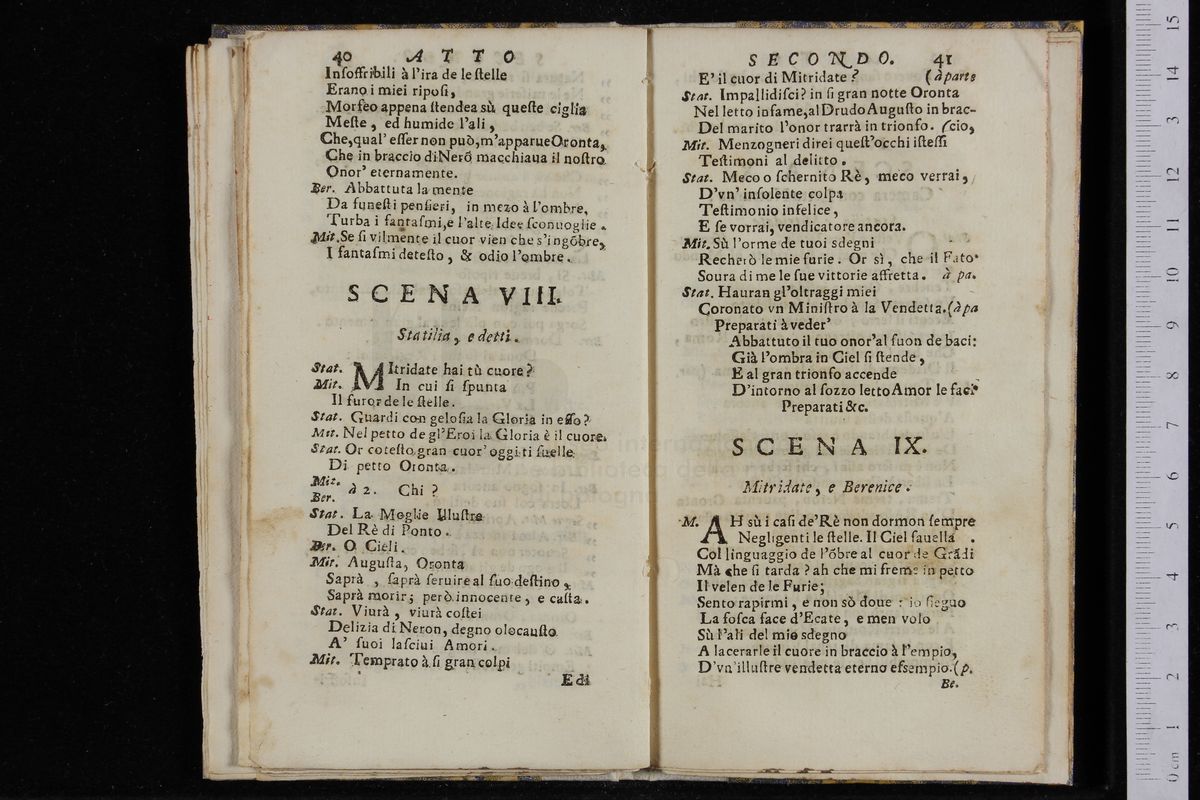 40 ATTO
Insoffribili à l'ira de le stelle
Erano i miei riposi,
Morfeo appena stendea sù queste ciglia
Meste, ed humide l'ali,
Che, qual' esser non può, m'apparue Oronta,
Che in braccio di Nerõ macchiaua il nostro
Onor' eternamente.
Ber. Abbattuta la mente
Da funesti pensieri, in mezo à l'ombre,
Turba i fantasmi, e l'alte Idee sconuoglie.
Mit. Se sì vilmente il cuor vien che s'ingõbre,
I fantasmi detesto, & odio l'ombre.
SCENA VIII.
Statilia, e detti.
Stat. MItridate hai tù cuore?
Mit. In cui si spunta
Il furor de le stelle.
Stat. Guardi con gelosia la Gloria in esso?
Mit. Nel petto de gl'Eroi la Gloria è il cuore.
Stat. Or cotesto gran cuor' oggi ti suelle
Di petto Oronta.
Mit.
Ber. à 2. Chi?
Stat. La Moglie Illustre
Del Rè di Ponto.
Ber. O Cieli.
Mit. Augusta, Oronta
Saprà, saprà seruire al suo destino,
Saprà morir; però innocente, e casta.
Stat. Viurà, viurà costei
Delizia di Neron, degno olocausto
A' suoi lasciui Amori.
Mit. Temprato à sì gran colpi
E di
SECONDO. 41
E' il cuor di Mitridate? (à parte
Stat. Impallidisci? in sì gran notte Oronta
Nel letto infame, al Drudo Augusto in brac-
Del marito l'onor trarrà in trionfo. (cio,
Mit. Menzogneri direi quest'occhi istessi
Testimoni al delitto.
Stat. Meco o schernito Rè, meco verrai,
D'vn' insolente colpa
Testimonio infelice,
E se vorrai, vendicatore ancora.
Mit. Sù l'orme de tuoi sdegni
Recherò le mie furie. Or sì, che il Fato
Soura di me le sue vittorie affretta. à pa.
Stat. Hauran gl'oltraggi miei
Coronato vn Ministro à la Vendetta. (à pa
Preparati à veder'
Abbattuto il tuo onor' al suon de baci:
Già l'ombra in Ciel si stende,
E al gran trionfo accende
D'intorno al sozzo letto Amor le faci
Preparati &c.
SCENA IX.
Mitridate, e Berenice.
M. AH sù i casi de' Rè non dormon sempre
Negligenti le stelle. Il Ciel fauella
Col linguaggio de l'õbre al cuor de Grãdi
Mà che si tarda? ah che mi freme in petto
Il velen de le Furie;
Sento rapirmi, e non sò doue: io sieguo
La fosca face d'Ecate, e men volo
Sù l'ali del mio sdegno
A lacerarle il cuore in braccio à l'empio,
D'vn' illustre vendetta eterno essempio. (p.
Be.